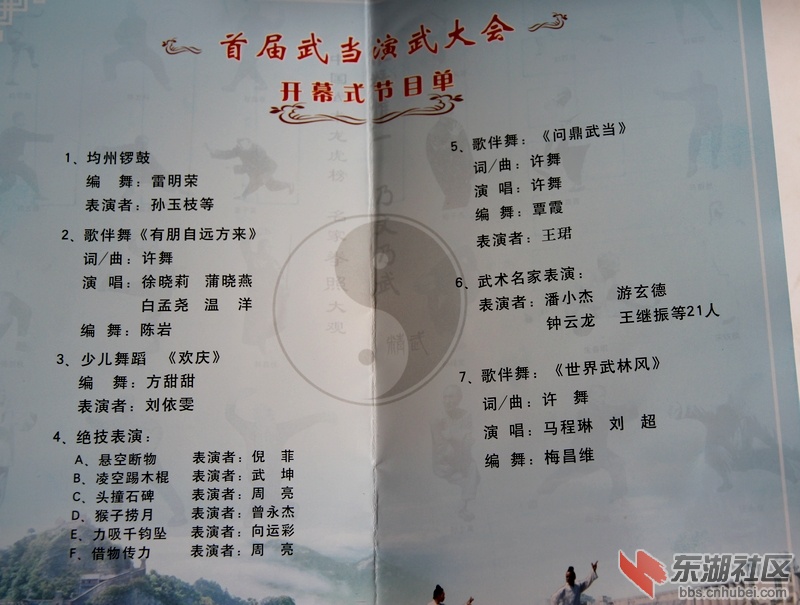 首届武当演武大会
开幕式节目单
1、均州锣鼓
编 舞：雷明荣
表演者：孙玉枝等
2、歌伴舞《有朋自远方来》
词/曲：许舞
演 唱：徐晓莉 蒲晓燕
白孟尧 温 洋
编 舞：陈岩
3、少儿舞蹈 《欢庆》
编 舞：方甜甜
表演者：刘依雯
4、绝技表演：
A、悬空断物 表演者：倪 菲
B、凌空踢木棍 表演者：武 坤
C、头撞石碑 表演者：周 亮
D、猴子捞月 表演者：曾永杰
E、力吸千钧坠 表演者：向运彩
F、借物传力 表演者：周 亮
5、歌伴舞：《问鼎武当》
词/曲：许舞
演 唱：许舞
编 舞：覃霞
表演者：王珺
6、武术名家表演：
表演者：潘小杰 游玄德
钟云龙 王继振等21人
7、歌伴舞：《世界武林风》
词/曲：许 舞
演 唱：马程琳 刘 超
编 舞：梅昌维
东湖社区
bbs.cnhubei.com